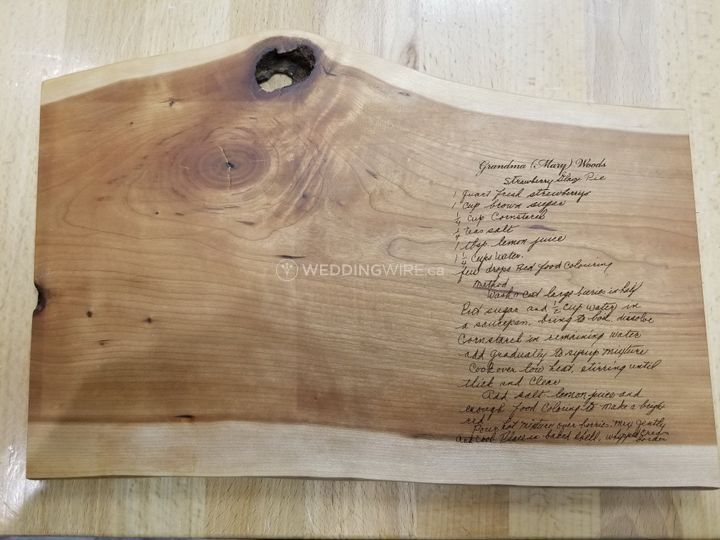 Grandma (Mary) Woods
Strawberry Glaze Pie
1 quart fresh strawberrys
1 cup brown sugar
1/4 cup Cornstarch
1/4 teas salt
1 tbsp. lemon juice
1 1/4 cups water.
few drops Red food Colouring
Method
Wash & cut large berries in half
Put sugar and 1/2 cup water in
a saucepan. bring to boil. dissolve
Cornstarch in remaining water
add gradually to syrup mixture
Cook over low heat, stirring until
thick and clear
Add salt lemon juice and
enough food coloring to make a bright
red
Pour hot mixture over berries. mix gently
and cool. Place in baked shell, whipped cream
border
WEDDINGWIRE.ca